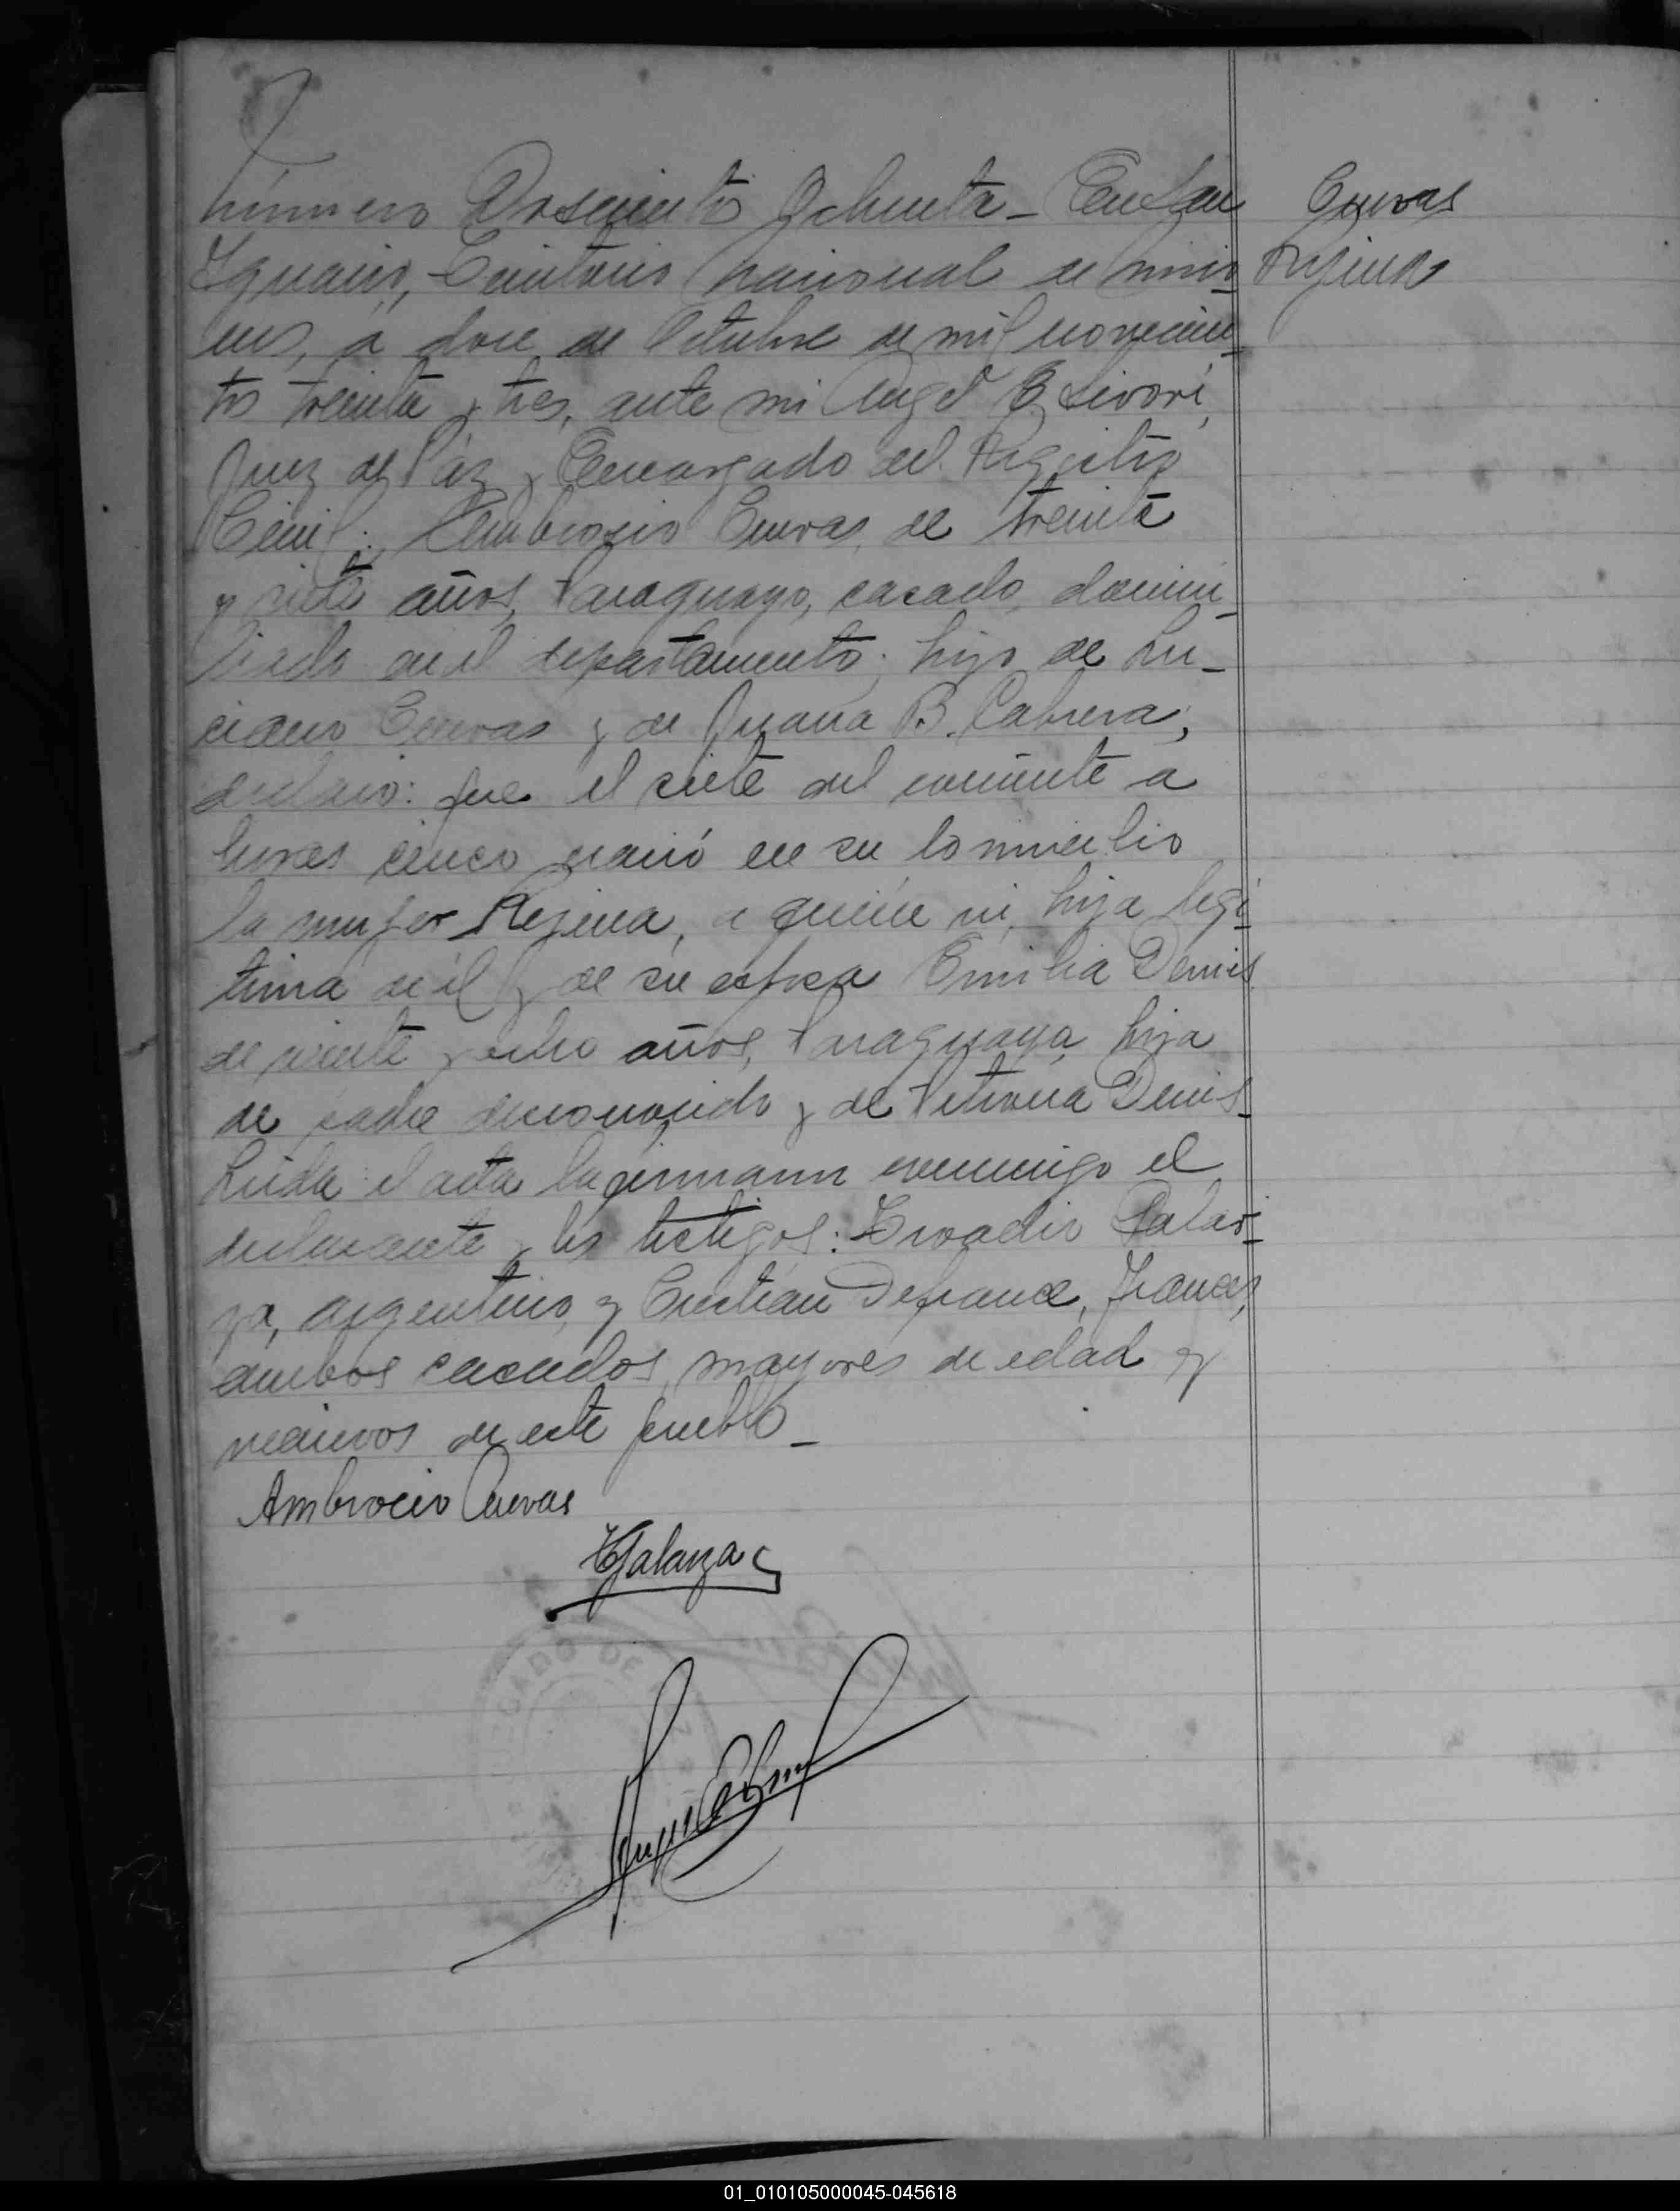 Número Doscientos Ochenta_ En San
Cuevas
Ignacio, Territorio Nacional de Misio_
Regina
nes, a doce de Octubre de mil novecien_
tos treinta y tres, ante mi Angel E,
Juez de Paz y Encargado del Registro
Civil; Ambrosio Cuevas, de treinta
y siete años, Paraguayo, casado, domici_
liado en el departamento; hijo de Lu_
ciano Cuevas y de Juana B. Cabrera;
declaró: que el siete del corriente a
horas cinco nació en su domicilio
la mujer Regina, a quien vi, hija legi_
tima de él y de su esposa Emilia Denis
de veinte y ocho años, Paraguaya, hija
de padre desconocido y de Petrona Denis_
Leida el acta la firmaron conmigo el
declarante y los testigos: Galar_
za, argentino, y Cristian Defrance, Frances,
ambos casados, mayores de edad y
vecinos de este pueblo_
Ambrocio Cuevas
Galarza
JUZGADO DE
01_010105000045-045618